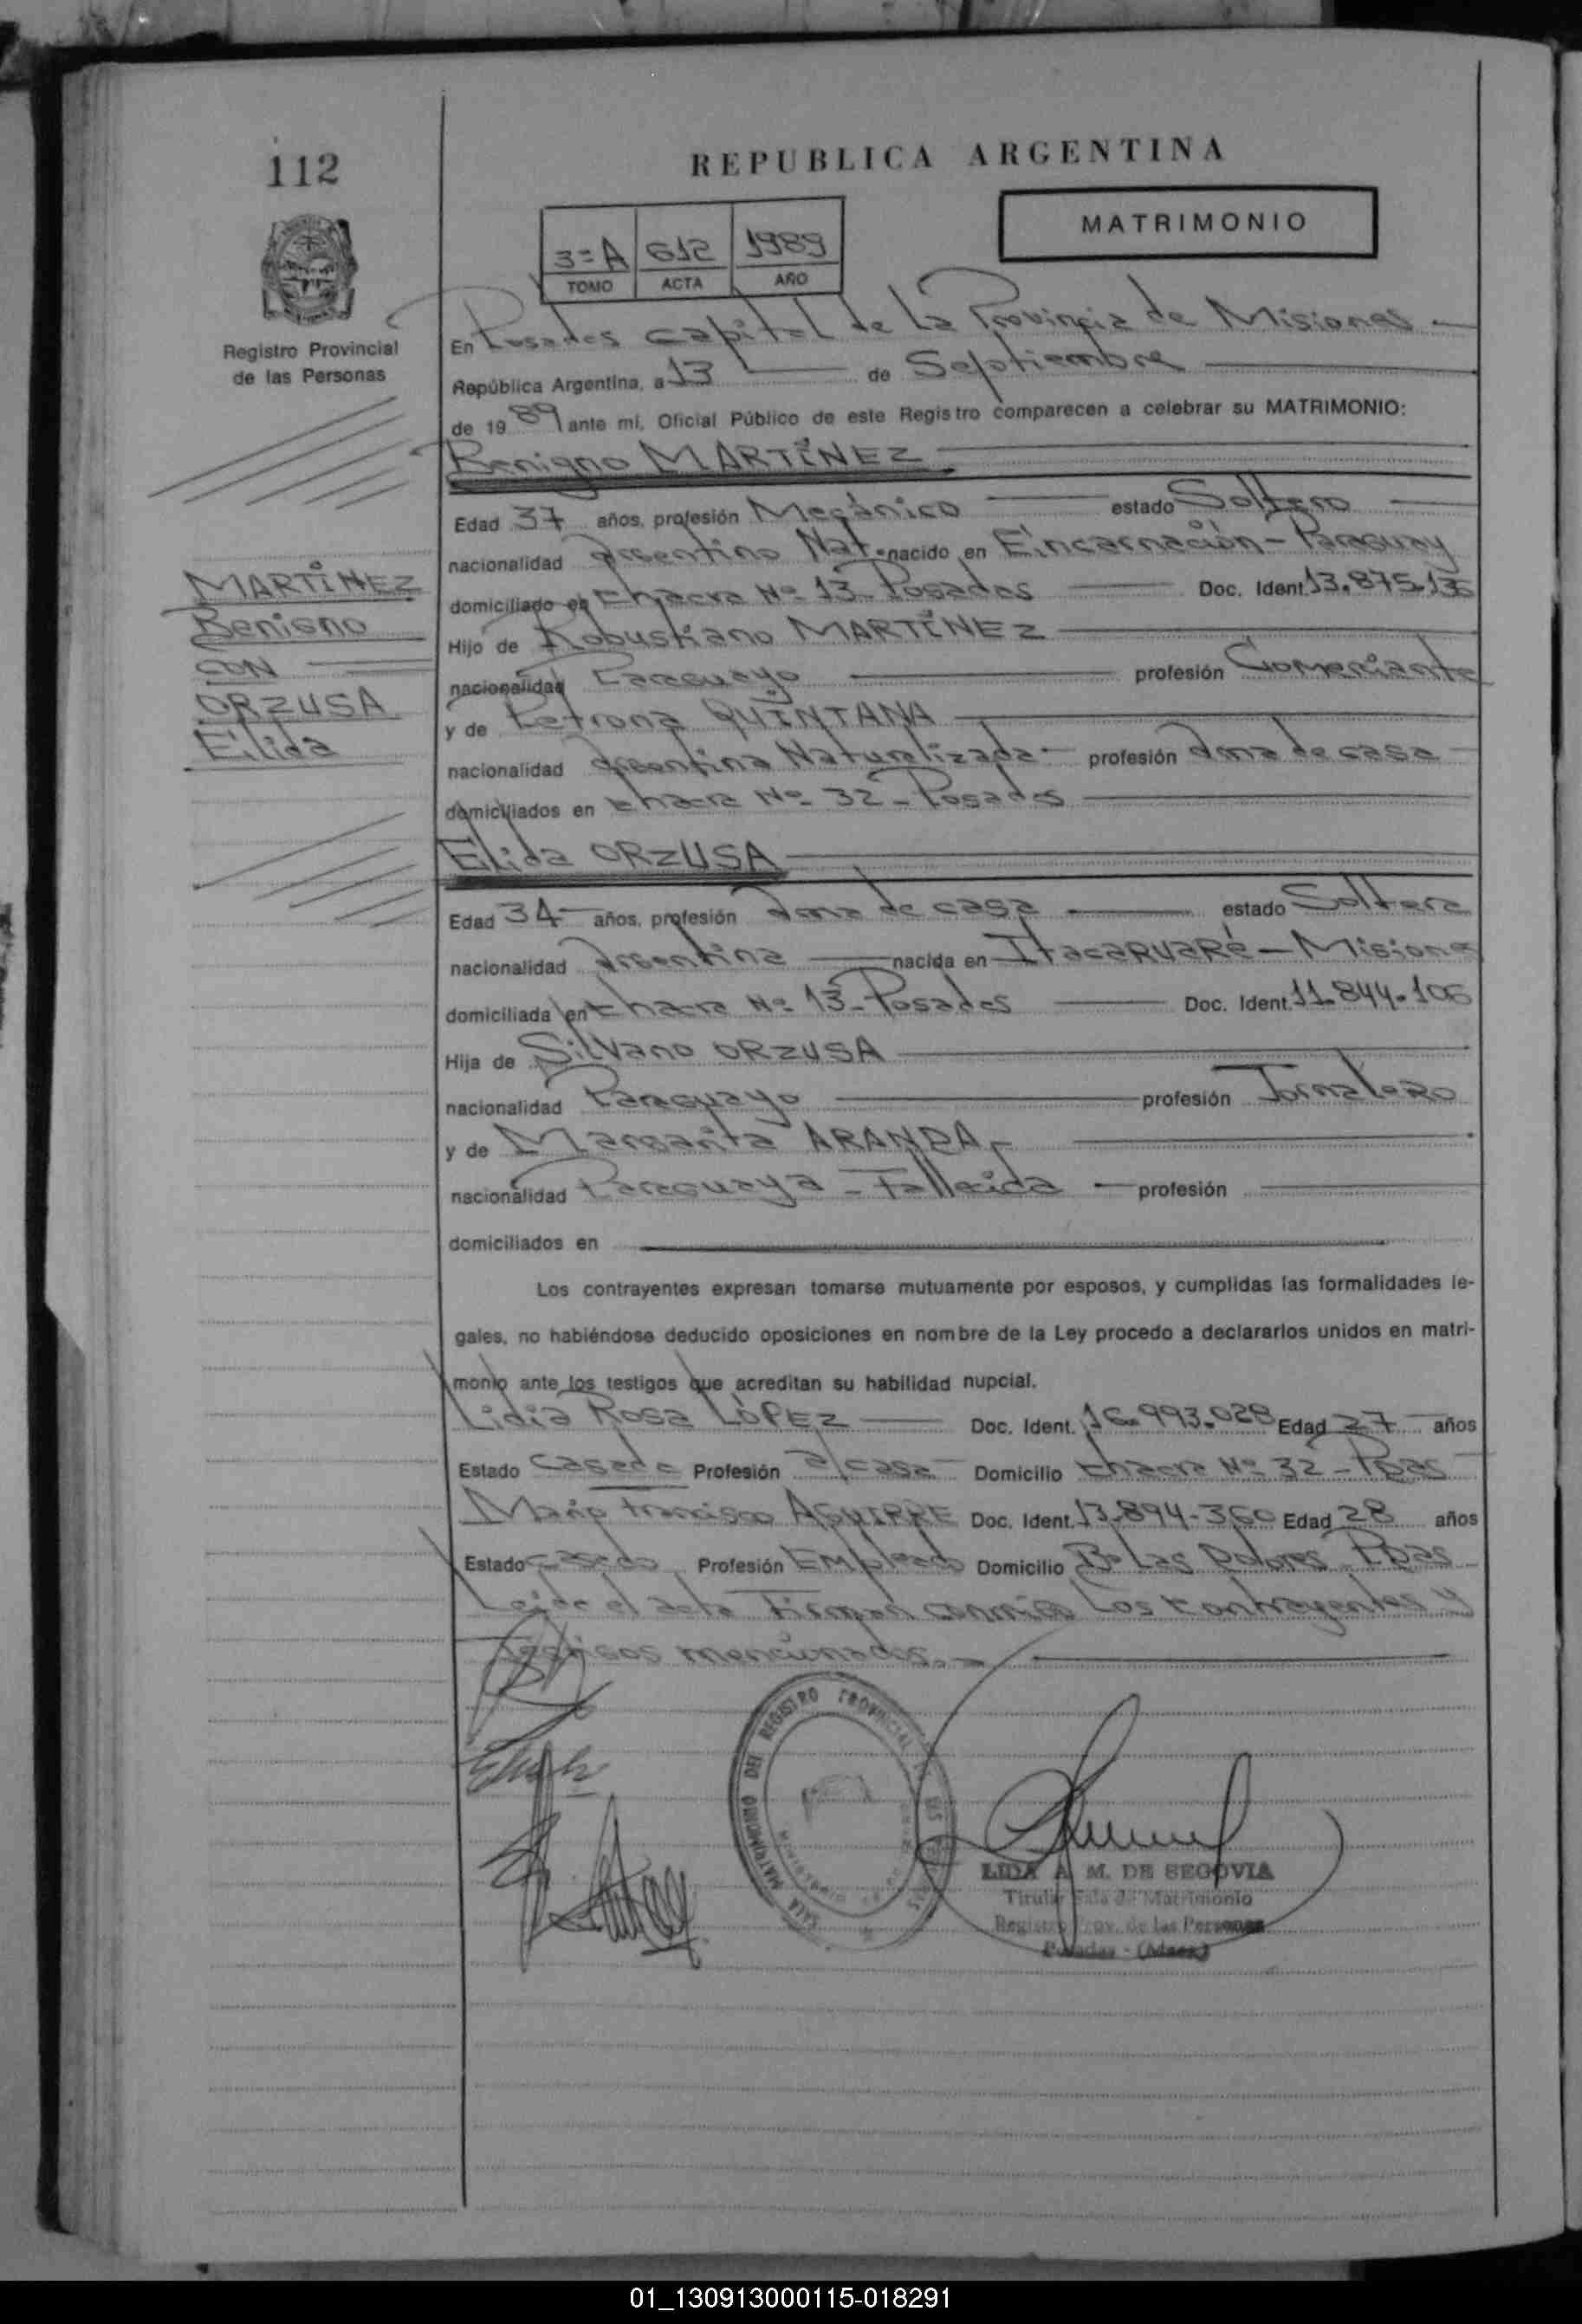 112
REPUBLICA ARGENTINA
MATRIMONIO
3=A 612 1989
TOMO ACTA AÑO
Registro Provincial
de las Personas
En Posadas capital de la Provincia de Misiones
República Argentina, a 13 de Septiembre
de 1989 ante mí, Oficial Público de este Registro comparecen a celebrar su MATRIMONIO:
Benigno MARTÍNEZ
Edad 37 años, profesión Mecánico estado Soltero
nacionalidad Argentino Nat. nacido en Encarnación - Paraguay
domiciliado en Chacra Nº 13 - Posadas Doc. Ident. 13.875.136
Hijo de Robustiano MARTÍNEZ
nacionalidad Paraguayo profesión Comerciante
y de Petrona QUINTANA
nacionalidad Argentina Naturalizada - profesión Ama de casa
domiciliados en Chacra Nº 32 - Posadas
MARTÍNEZ
Benigno
CON
ORZUSA
Elida
Elida ORZUSA
Edad 34 - años, profesión Ama de casa estado Soltera
nacionalidad Argentina nacida en Itacaruaré - Misiones
domiciliada en Chacra Nº 13 - Posadas Doc. Ident. 11.844.106
Hija de Silvano ORZUSA
nacionalidad Paraguayo profesión Jornalero
y de Margarita ARANDA -
nacionalidad Paraguaya - Fallecida - profesión
domiciliados en
Los contrayentes expresan tomarse mutuamente por esposos, y cumplidas las formalidades le-
gales, no habiéndose deducido oposiciones en nombre de la Ley procedo a declararlos unidos en matri-
monio ante los testigos que acreditan su habilidad nupcial.
Lidia Rosa LÓPEZ Doc. Ident. 16.993.028 Edad 27 años
Estado Casada Profesión a/casa Domicilio Chacra Nº 32 - Pdas
Mario Francisco AGUIRRE Doc. Ident. 13.894.360 Edad 28 años
Estado casado Profesión Empleado Domicilio Bº Las Dolores - Pdas
Leída el acta Firman conmigo Los contrayentes y
Testigos mencionados. -
SALA MATRIMONIO DEL REGISTRO PROVINCIAL DE LAS PERSONAS
LIDA A. M. DE SEGOVIA
Titular Sala de Matrimonio
Registro Prov. de las Personas
Posadas - (Mnes)
01_130913000115-018291